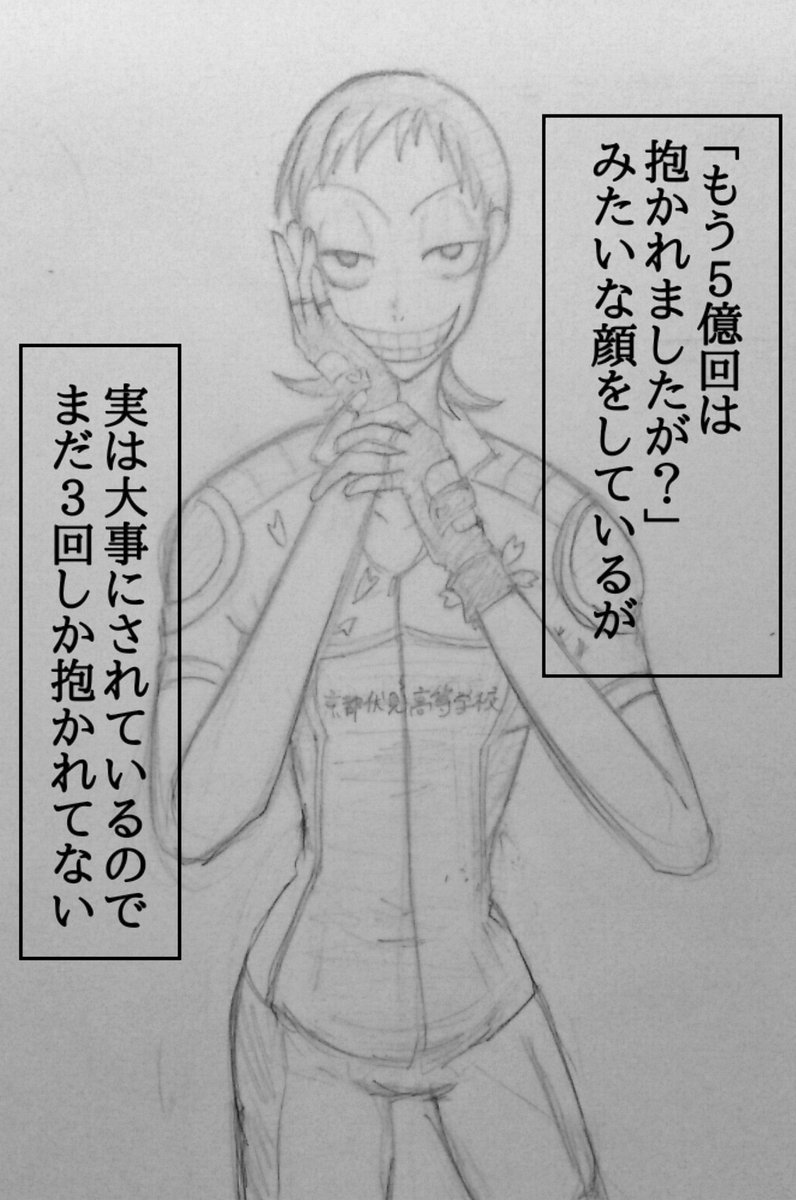 「もう５億回は
抱かれましたが？」
みたいな顔をしているが
京都伏見高等学校
実は大事にされているので
まだ３回しか抱かれてない